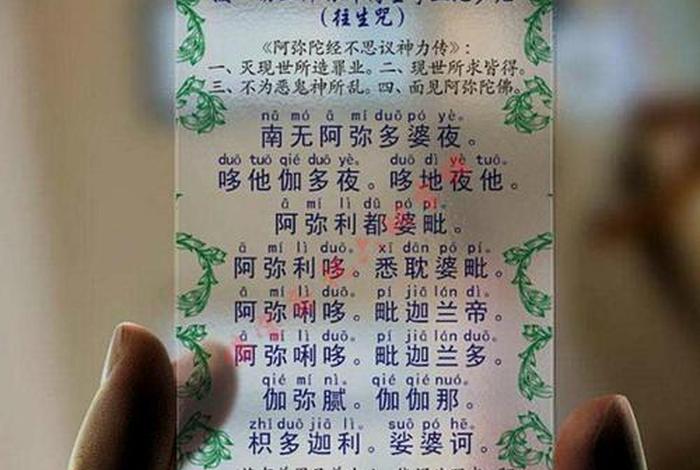 (往生咒)
《阿弥陀经不思议神力传》:
一、灭现世所造罪业。二、现世所求皆得。
三、不为恶鬼神所乱。四、面见阿弥陀佛。
nā mó ā mí duō pó yè.
南无阿弥多婆夜。
duō tuō qié duō yè. duō dì yè tuō.
哆他伽多夜。哆地夜他。
ā mí lì dū pó pí.
阿弥利都婆毗。
ā mí lì duō. xī dān pó pí.
阿弥利哆。悉耽婆毗。
ā mí lì duō. pí jiā lán dì.
阿弥唎哆。毗迦兰帝。
ā mí lì duō. pí jiā lán duō.
阿弥唎哆。毗迦兰多。
qié mí nì. qié qié nuó.
伽弥腻。伽伽那。
zhǐ duō jiā lì. suō pó hē.
枳多迦利。娑婆诃。